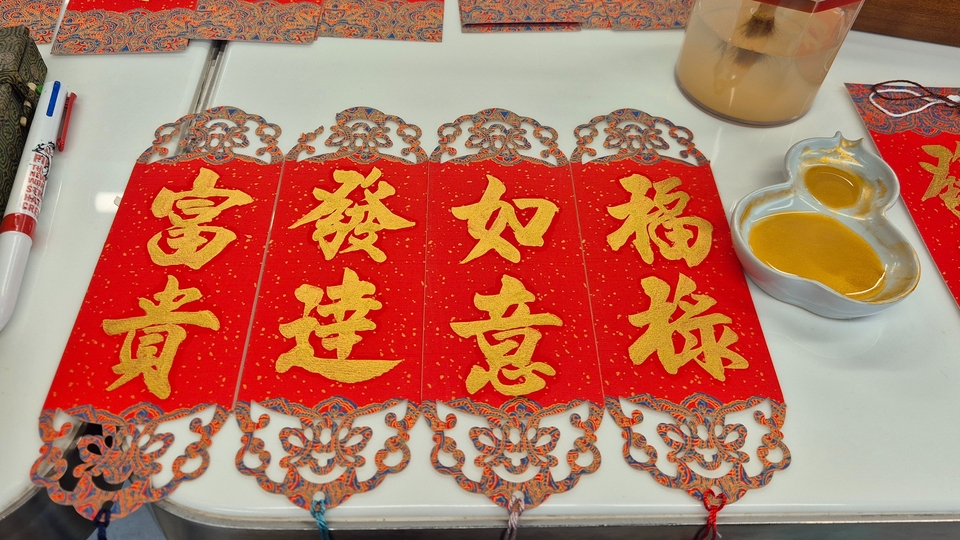 富貴
發達
如意
福祿